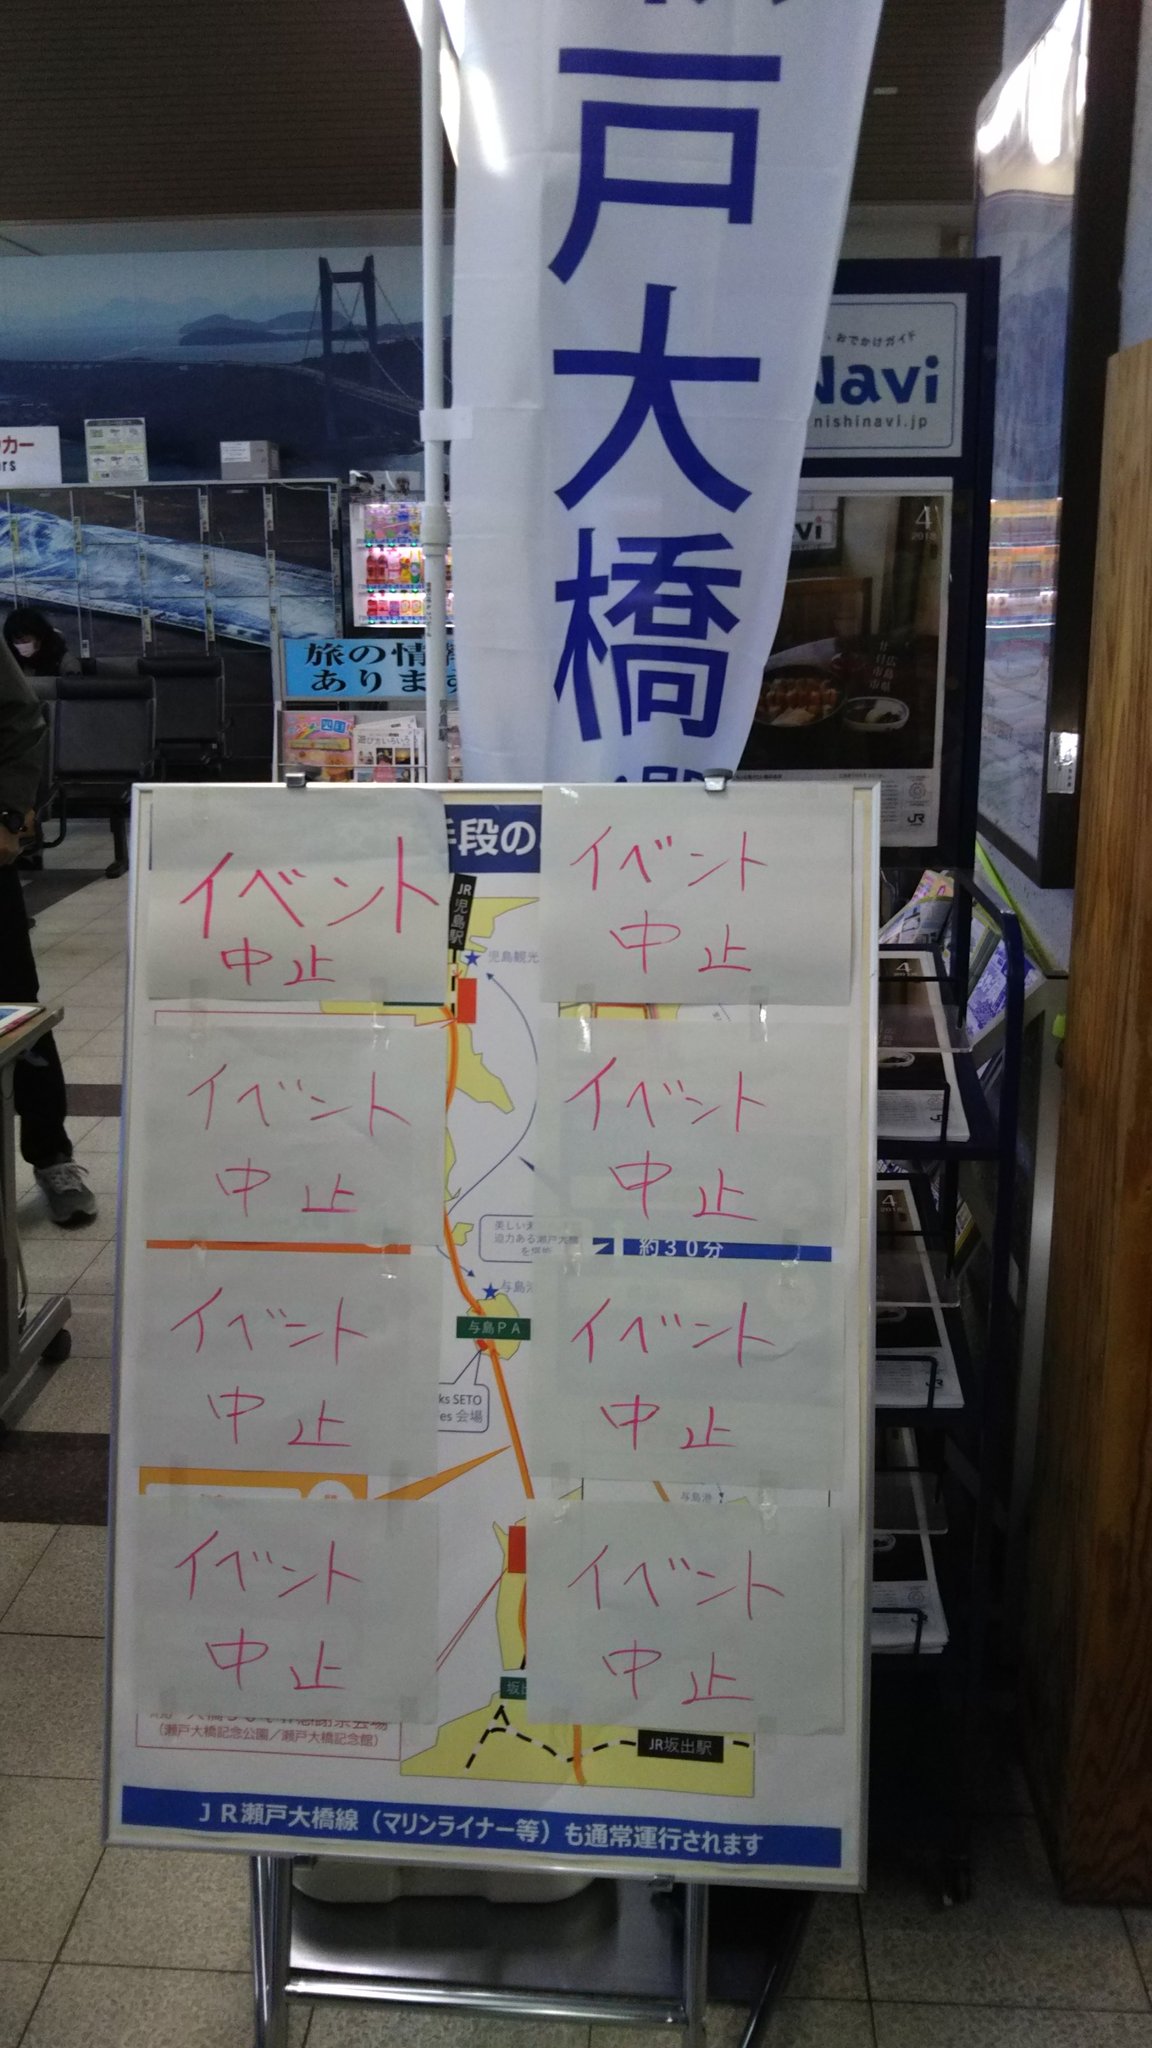 戸大橋
おでかけガイド
Navi
nishinavi.jp
カー
rs
4
2018
広島県
廿日市市
JR
旅の情
あります
四国
遊び方いろいろ
児島駅
手段の
イベント
中止
イベント
中止
JR児島駅
児島観光
イベント
中止
イベント
中止
美しい
迫力ある瀬戸大橋
約30分
与島
与島PA
イベント
中止
イベント
中止
ks SETO
es 会場
与島港
イベント
中止
イベント
中止
(瀬戸大橋記念公園/瀬戸大橋記念館)
JR坂出駅
JR瀬戸大橋線(マリンライナー等)も通常運行されます
4
JR
4
2018
JR